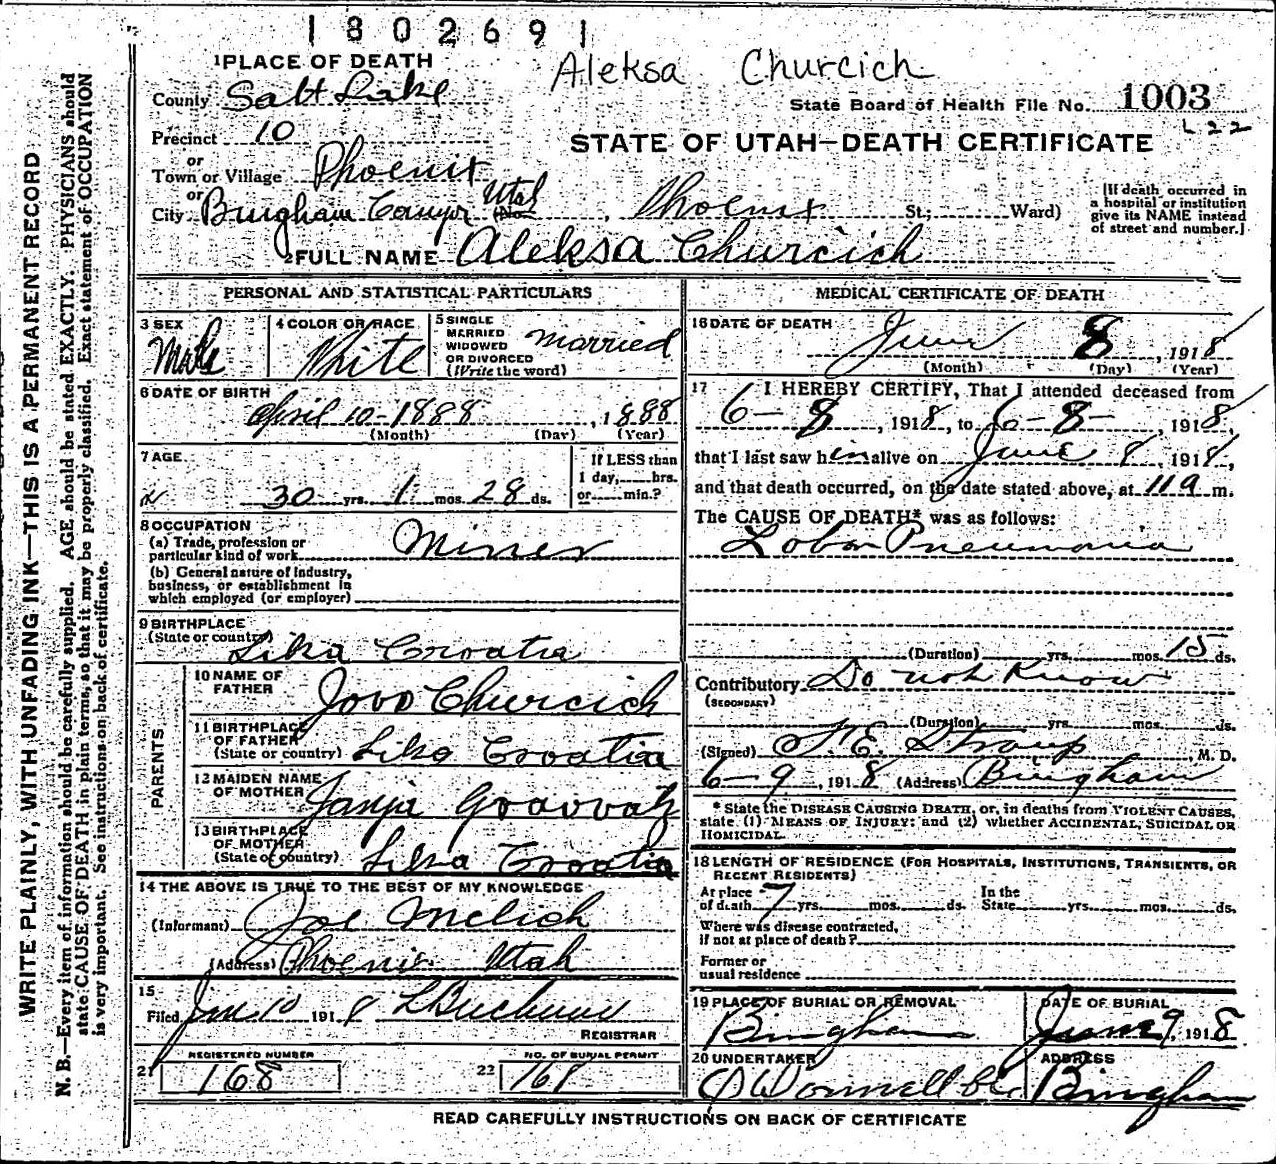 1802691
Aleksa Churcich
1 PLACE OF DEATH
County Salt Lake
State Board of Health File No. 1003
Precinct 10
STATE OF UTAH—DEATH CERTIFICATE
or
Town or Village Phoenix
or
City Bingham Canyon Utah, Phoenix St.; Ward)
[If death occurred in
a hospital or institution
give its NAME instead
of street and number.]
2 FULL NAME Aleksa Churcich
PERSONAL AND STATISTICAL PARTICULARS
3 SEX Male
4 COLOR OR RACE White
5 SINGLE
MARRIED
WIDOWED
OR DIVORCED
(Write the word) married
6 DATE OF BIRTH April 10-1888, 1888
(Month) (Day) (Year)
7 AGE
30 yrs. 1 mos. 28 ds.
If LESS than
1 day, hrs.
or min.?
8 OCCUPATION
(a) Trade, profession or
particular kind of work Miner
(b) General nature of industry,
business, or establishment in
which employed (or employer)
9 BIRTHPLACE
(State or country) Lika Croatia
PARENTS
10 NAME OF
FATHER Jovo Churcich
11 BIRTHPLACE
OF FATHER
(State or country) Lika Croatia
12 MAIDEN NAME
OF MOTHER Janja
13 BIRTHPLACE
OF MOTHER
(State or country) Lika Croatia
14 THE ABOVE IS TRUE TO THE BEST OF MY KNOWLEDGE
(Informant) Joe Melich
(Address) Phoenix Utah
15
Filed Jun 10 1918
REGISTRAR
REGISTERED NUMBER
21 168
NO. OF BURIAL PERMIT
22 168
MEDICAL CERTIFICATE OF DEATH
16 DATE OF DEATH
June 8, 1918
(Month) (Day) (Year)
17 I HEREBY CERTIFY, That I attended deceased from
6-8, 1918, to 6-8-, 1918,
that I last saw him alive on June 8, 1918,
and that death occurred, on the date stated above, at 11 a m.
The CAUSE OF DEATH* was as follows:
Lobar Pneumonia
(Duration) yrs. mos. 15 ds.
Contributory Do not Know
(SECONDARY)
(Duration) yrs. mos. ds.
(Signed) F. E. Straup, M. D.
6-9, 1918 (Address) Bingham
* State the DISEASE CAUSING DEATH, or, in deaths from VIOLENT CAUSES,
state (1) MEANS OF INJURY; and (2) whether ACCIDENTAL, SUICIDAL OR
HOMICIDAL.
18 LENGTH OF RESIDENCE (FOR HOSPITALS, INSTITUTIONS, TRANSIENTS, OR
RECENT RESIDENTS)
At place
of death 7 yrs. mos. ds.
In the
State yrs. mos. ds.
Where was disease contracted,
if not at place of death?
Former or
usual residence
19 PLACE OF BURIAL OR REMOVAL
Bingham
DATE OF BURIAL
June 9, 1918
20 UNDERTAKER
O'Donnell &
ADDRESS
Bingham
READ CAREFULLY INSTRUCTIONS ON BACK OF CERTIFICATE
WRITE PLAINLY, WITH UNFADING INK—THIS IS A PERMANENT RECORD
N. B.—Every item of information should be carefully supplied. AGE should be stated EXACTLY. PHYSICIANS should
state CAUSE OF DEATH in plain terms, so that it may be properly classified. Exact statement of OCCUPATION
is very important. See instructions on back of certificate.